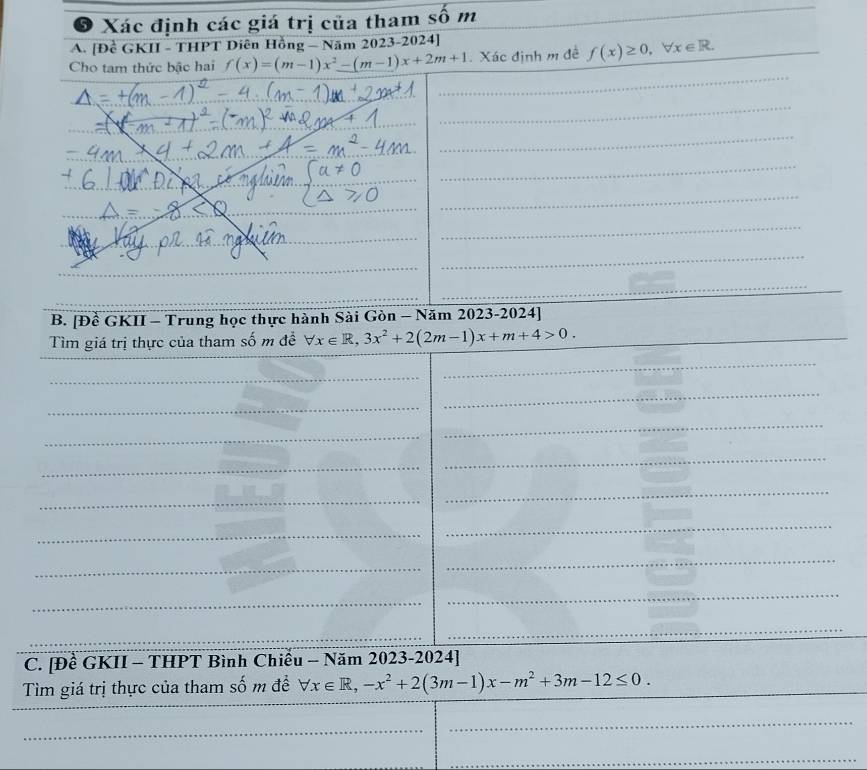 ❺ Xác định các giá trị của tham số m
A. [Đề GKII - THPT Diên Hồng – Năm 2023-2024]
Cho tam thức bậc hai f(x)=(m-1)x²-(m-1)x+2m+1. Xác định m để f(x)≥0, ∀x∈ℝ.
Δ = +(m-1)² - 4.(m-1) + 2m+1
-4m + 4 + 2m + 1 = m² - 4m
có nghiệm { a ≠ 0
Δ ≥ 0
Δ = -8 < 0
Vậy nghiệm
B. [Đề GKII – Trung học thực hành Sài Gòn – Năm 2023-2024]
Tìm giá trị thực của tham số m để ∀x∈ℝ, 3x²+2(2m-1)x+m+4>0.
C. [Đề GKII – THPT Bình Chiểu – Năm 2023-2024]
Tìm giá trị thực của tham số m để ∀x∈ℝ, -x²+2(3m-1)x-m²+3m-12≤0.